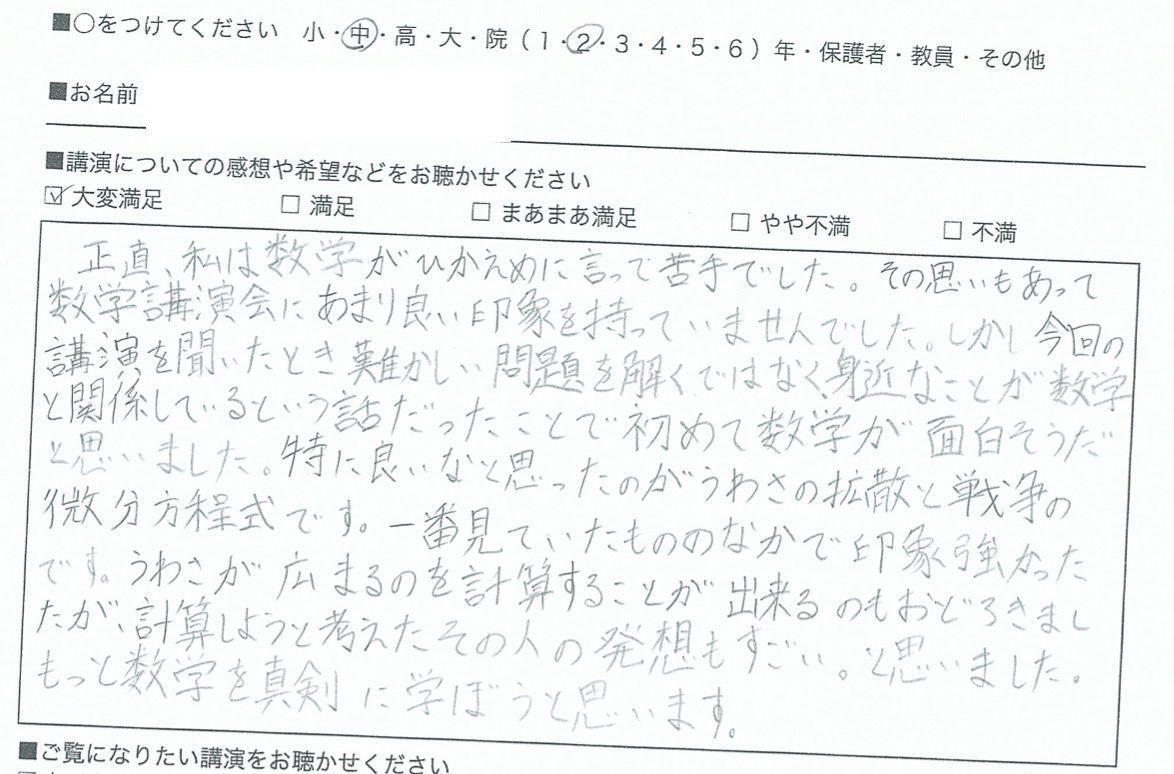 ■○をつけてください 小・中・高・大・院（1・2・3・4・5・6）年・保護者・教員・その他
■お名前
■講演についての感想や希望などをお聴かせください
☑大変満足 □ 満足 □ まあまあ満足 □ やや不満 □ 不満
正直、私は数学がひかえめに言って苦手でした。その思いもあって
数学講演会にあまり良い印象を持っていませんでした。しかし今回の
講演を聞いたとき難かしい問題を解くではなく、身近なことが数学
と関係しているという話だったことで初めて数学が面白そうだ
と思いました。特に良いなと思ったのがうわさの拡散と戦争の
微分方程式です。一番見ていたもののなかで印象強かった
です。うわさが広まるのを計算することが出来るのもおどろきまし
たが、計算しようと考えたその人の発想もすごい。と思いました。
もっと数学を真剣に学ぼうと思います。
■ご覧になりたい講演をお聴かせください